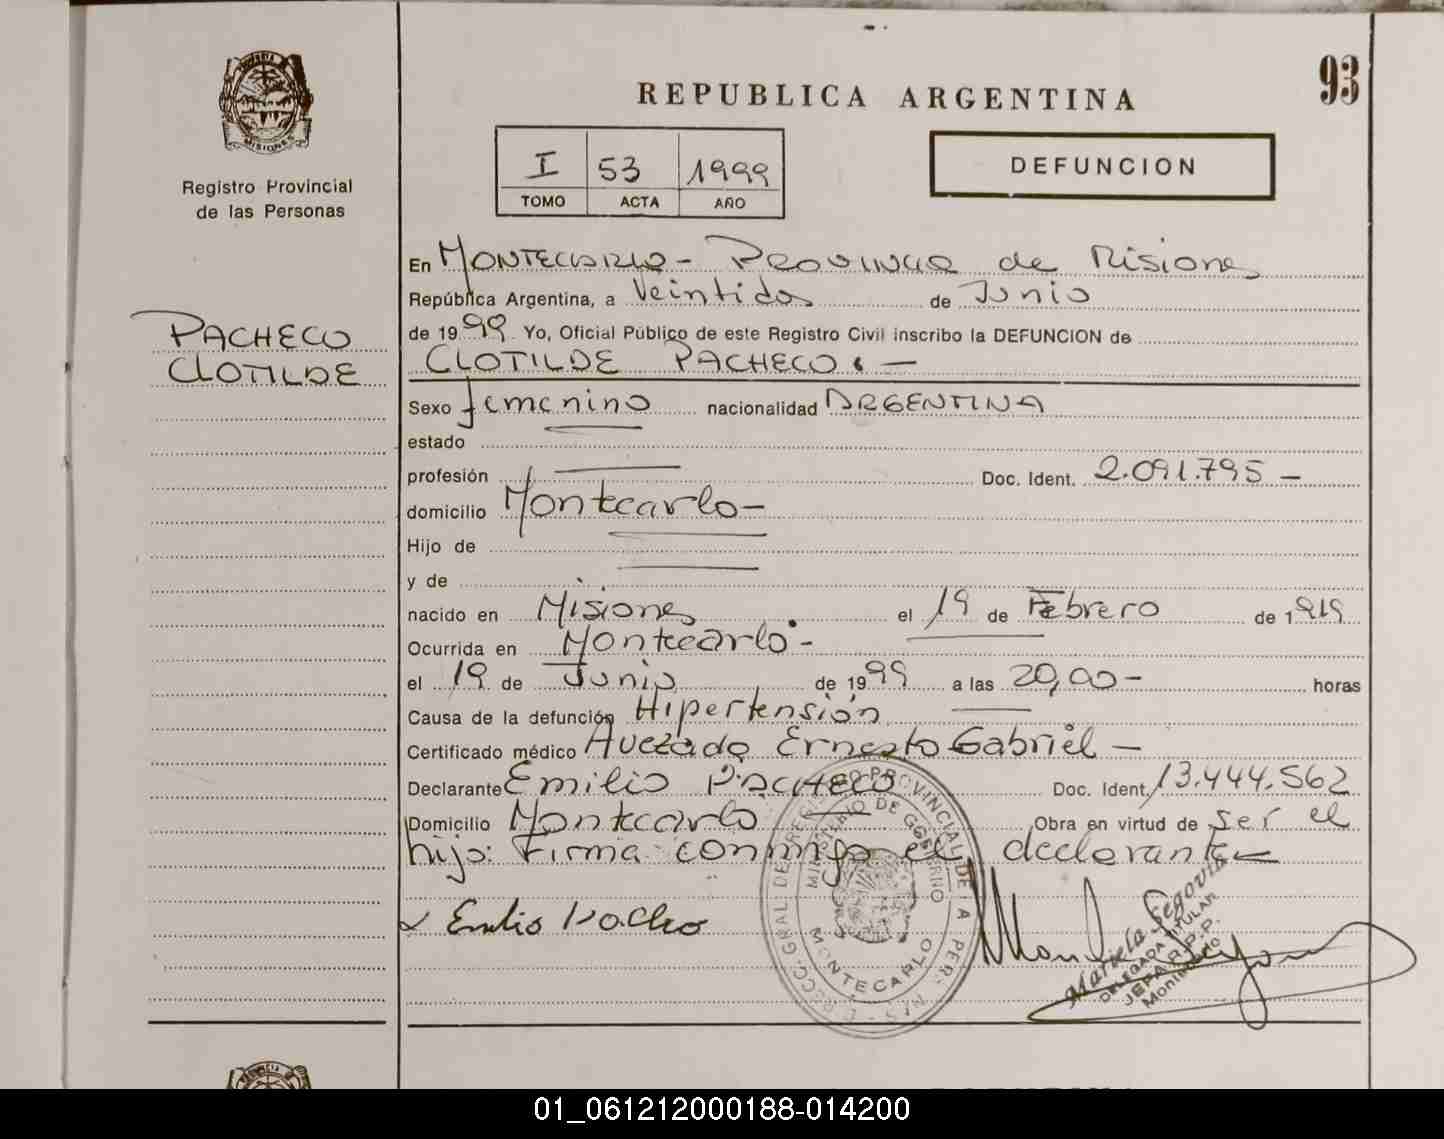 93
REPUBLICA ARGENTINA
MISIONES
Registro Provincial
de las Personas
I 53 1999
TOMO ACTA AÑO
DEFUNCION
PACHECO
CLOTILDE
En MONTECARLO - PROVINCIA de Misiones
República Argentina, a Veintidos de Junio
de 1999 Yo, Oficial Público de este Registro Civil inscribo la DEFUNCION de
CLOTILDE PACHECO. -
Sexo femenino nacionalidad ARGENTINA
estado
profesión Doc. Ident. 2.091.795 -
domicilio Montecarlo -
Hijo de
y de
nacido en Misiones el 19 de Febrero de 1919
Ocurrida en Montecarlo -
el 19 de Junio de 1999 a las 20,00 - horas
Causa de la defunción Hipertensión
Certificado médico Avezado Ernesto Gabriel -
Declarante Emilio PACHECO Doc. Ident. 13.444.562
Domicilio Montecarlo Obra en virtud de ser el
hijo: Firma conmigo el declarante
Emilio Pacheco
MINISTERIO DE GOBIERNO
MONTECARLO
Mariela Segovia
DELEGADA TITULAR
JEPA R.P.P.
Montecarlo
01_061212000188-014200